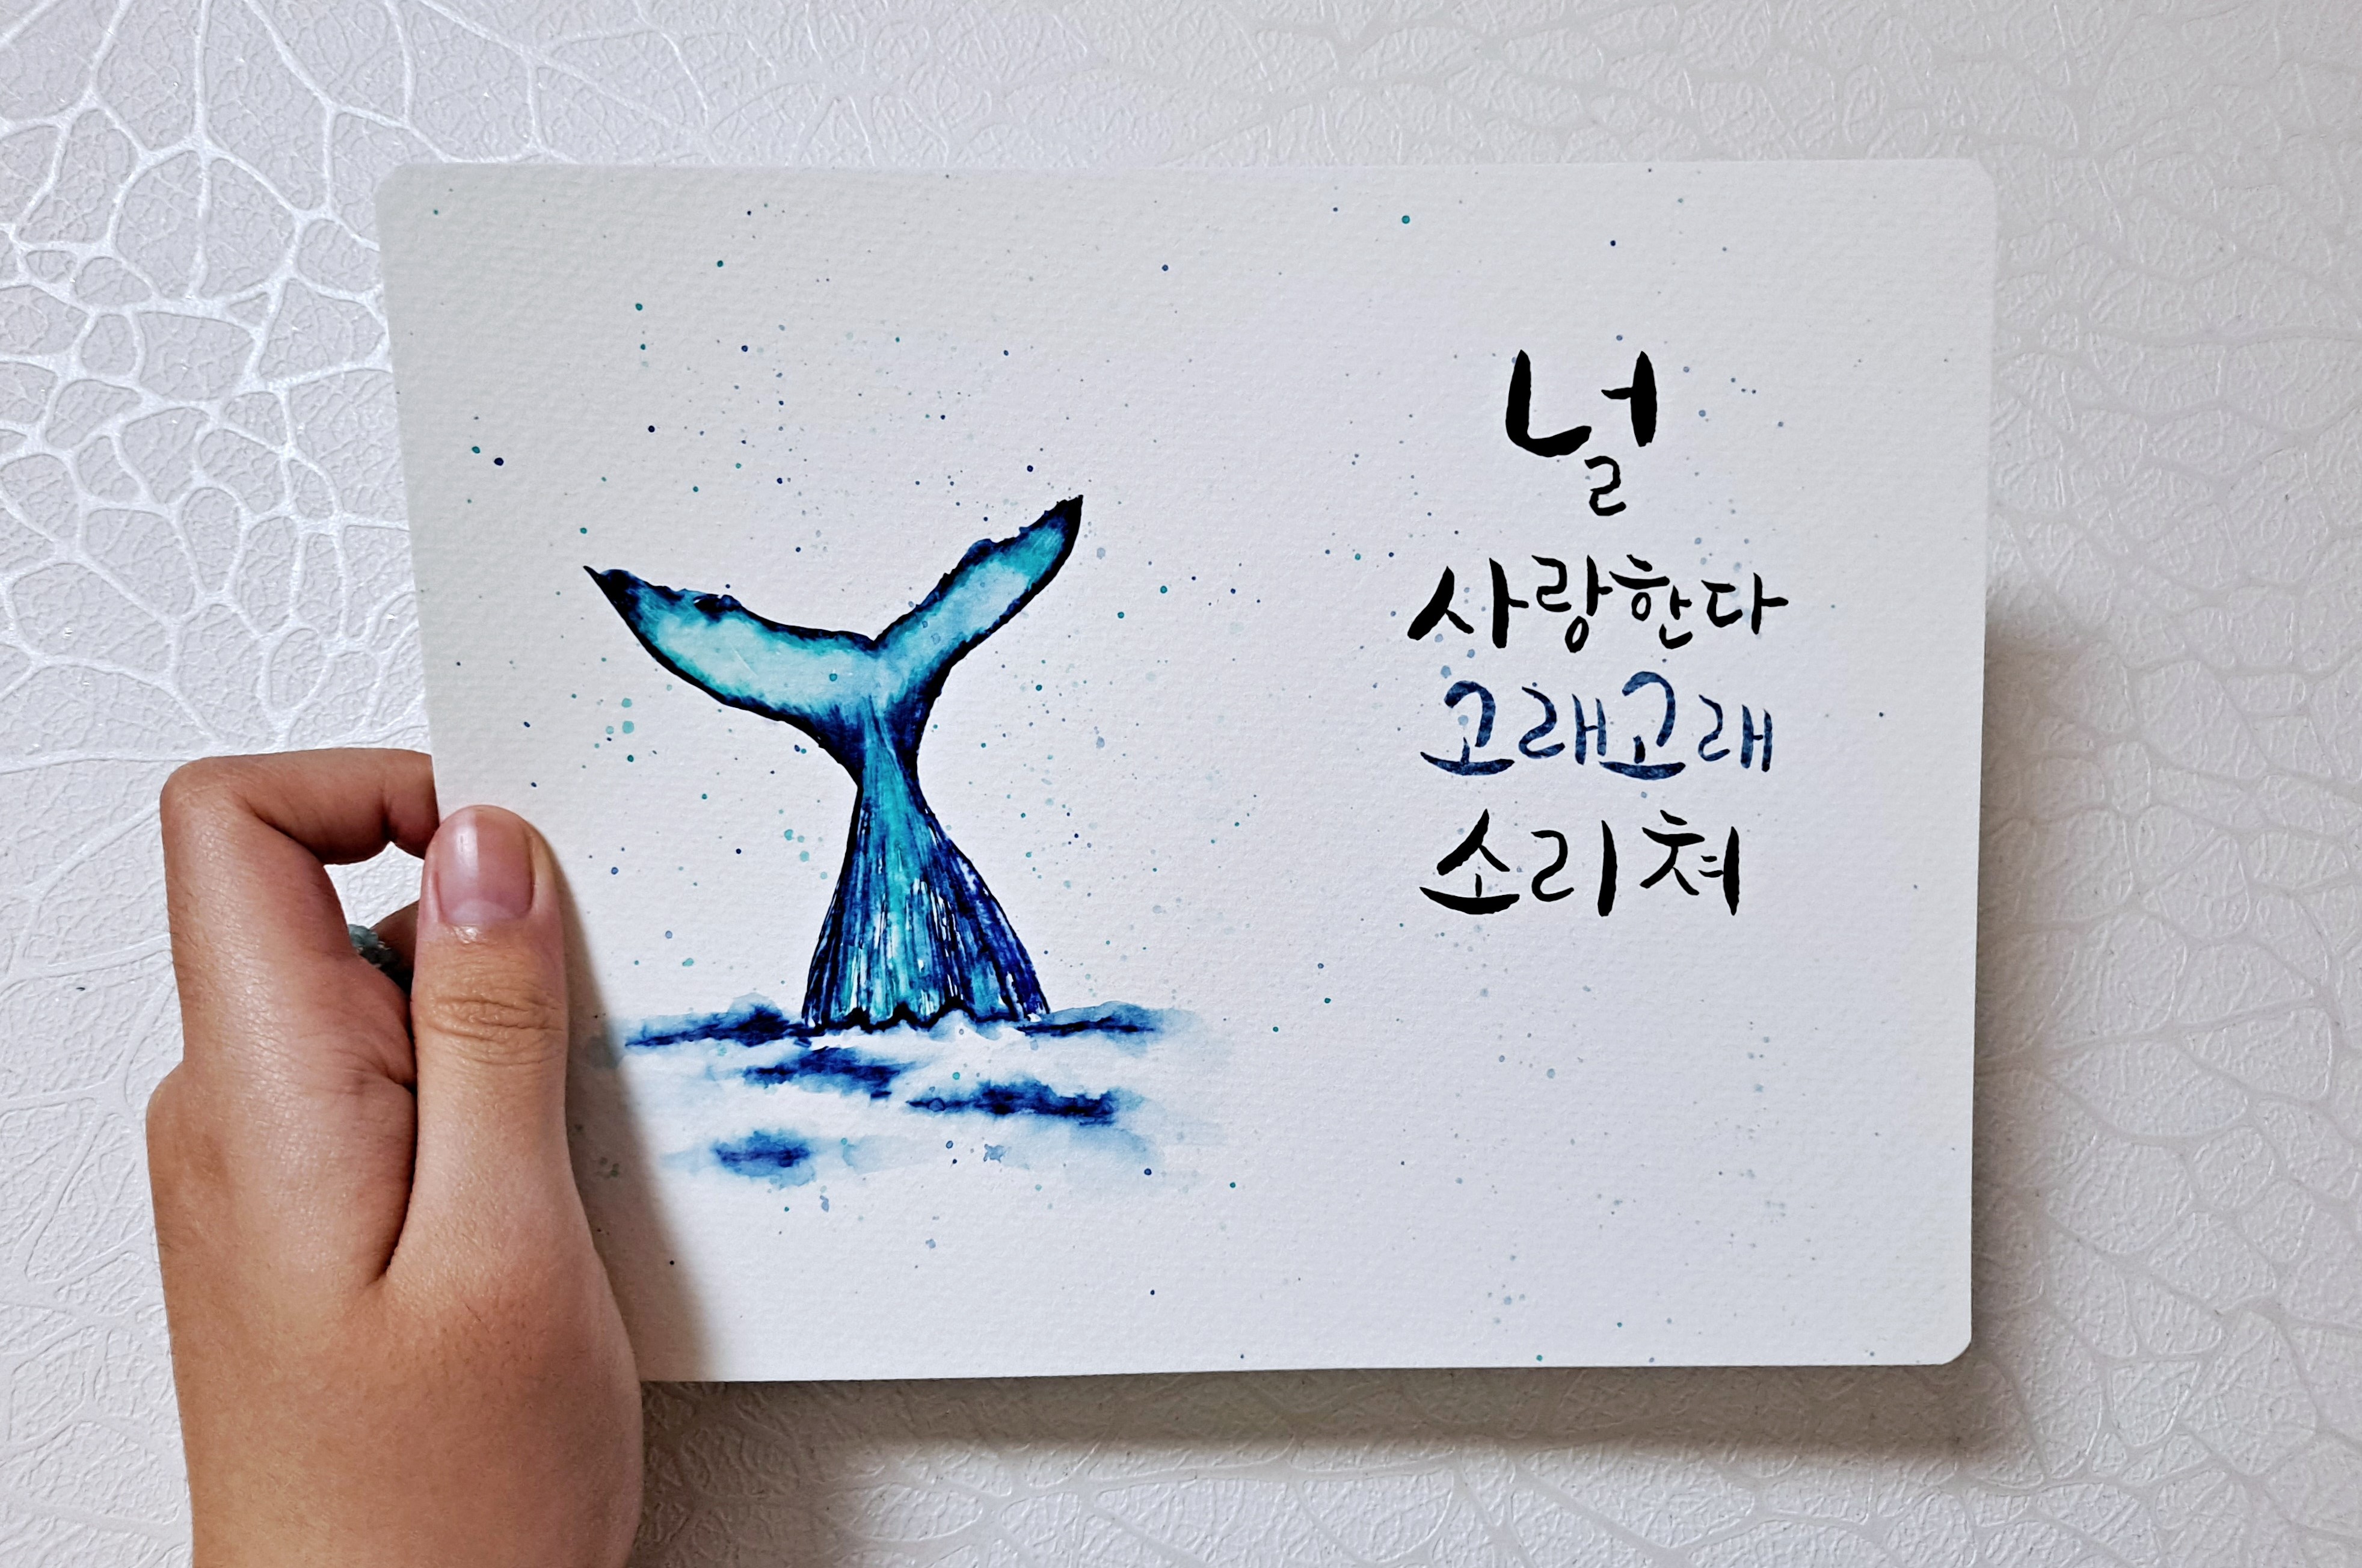 널
사랑한다
고래고래
소리쳐